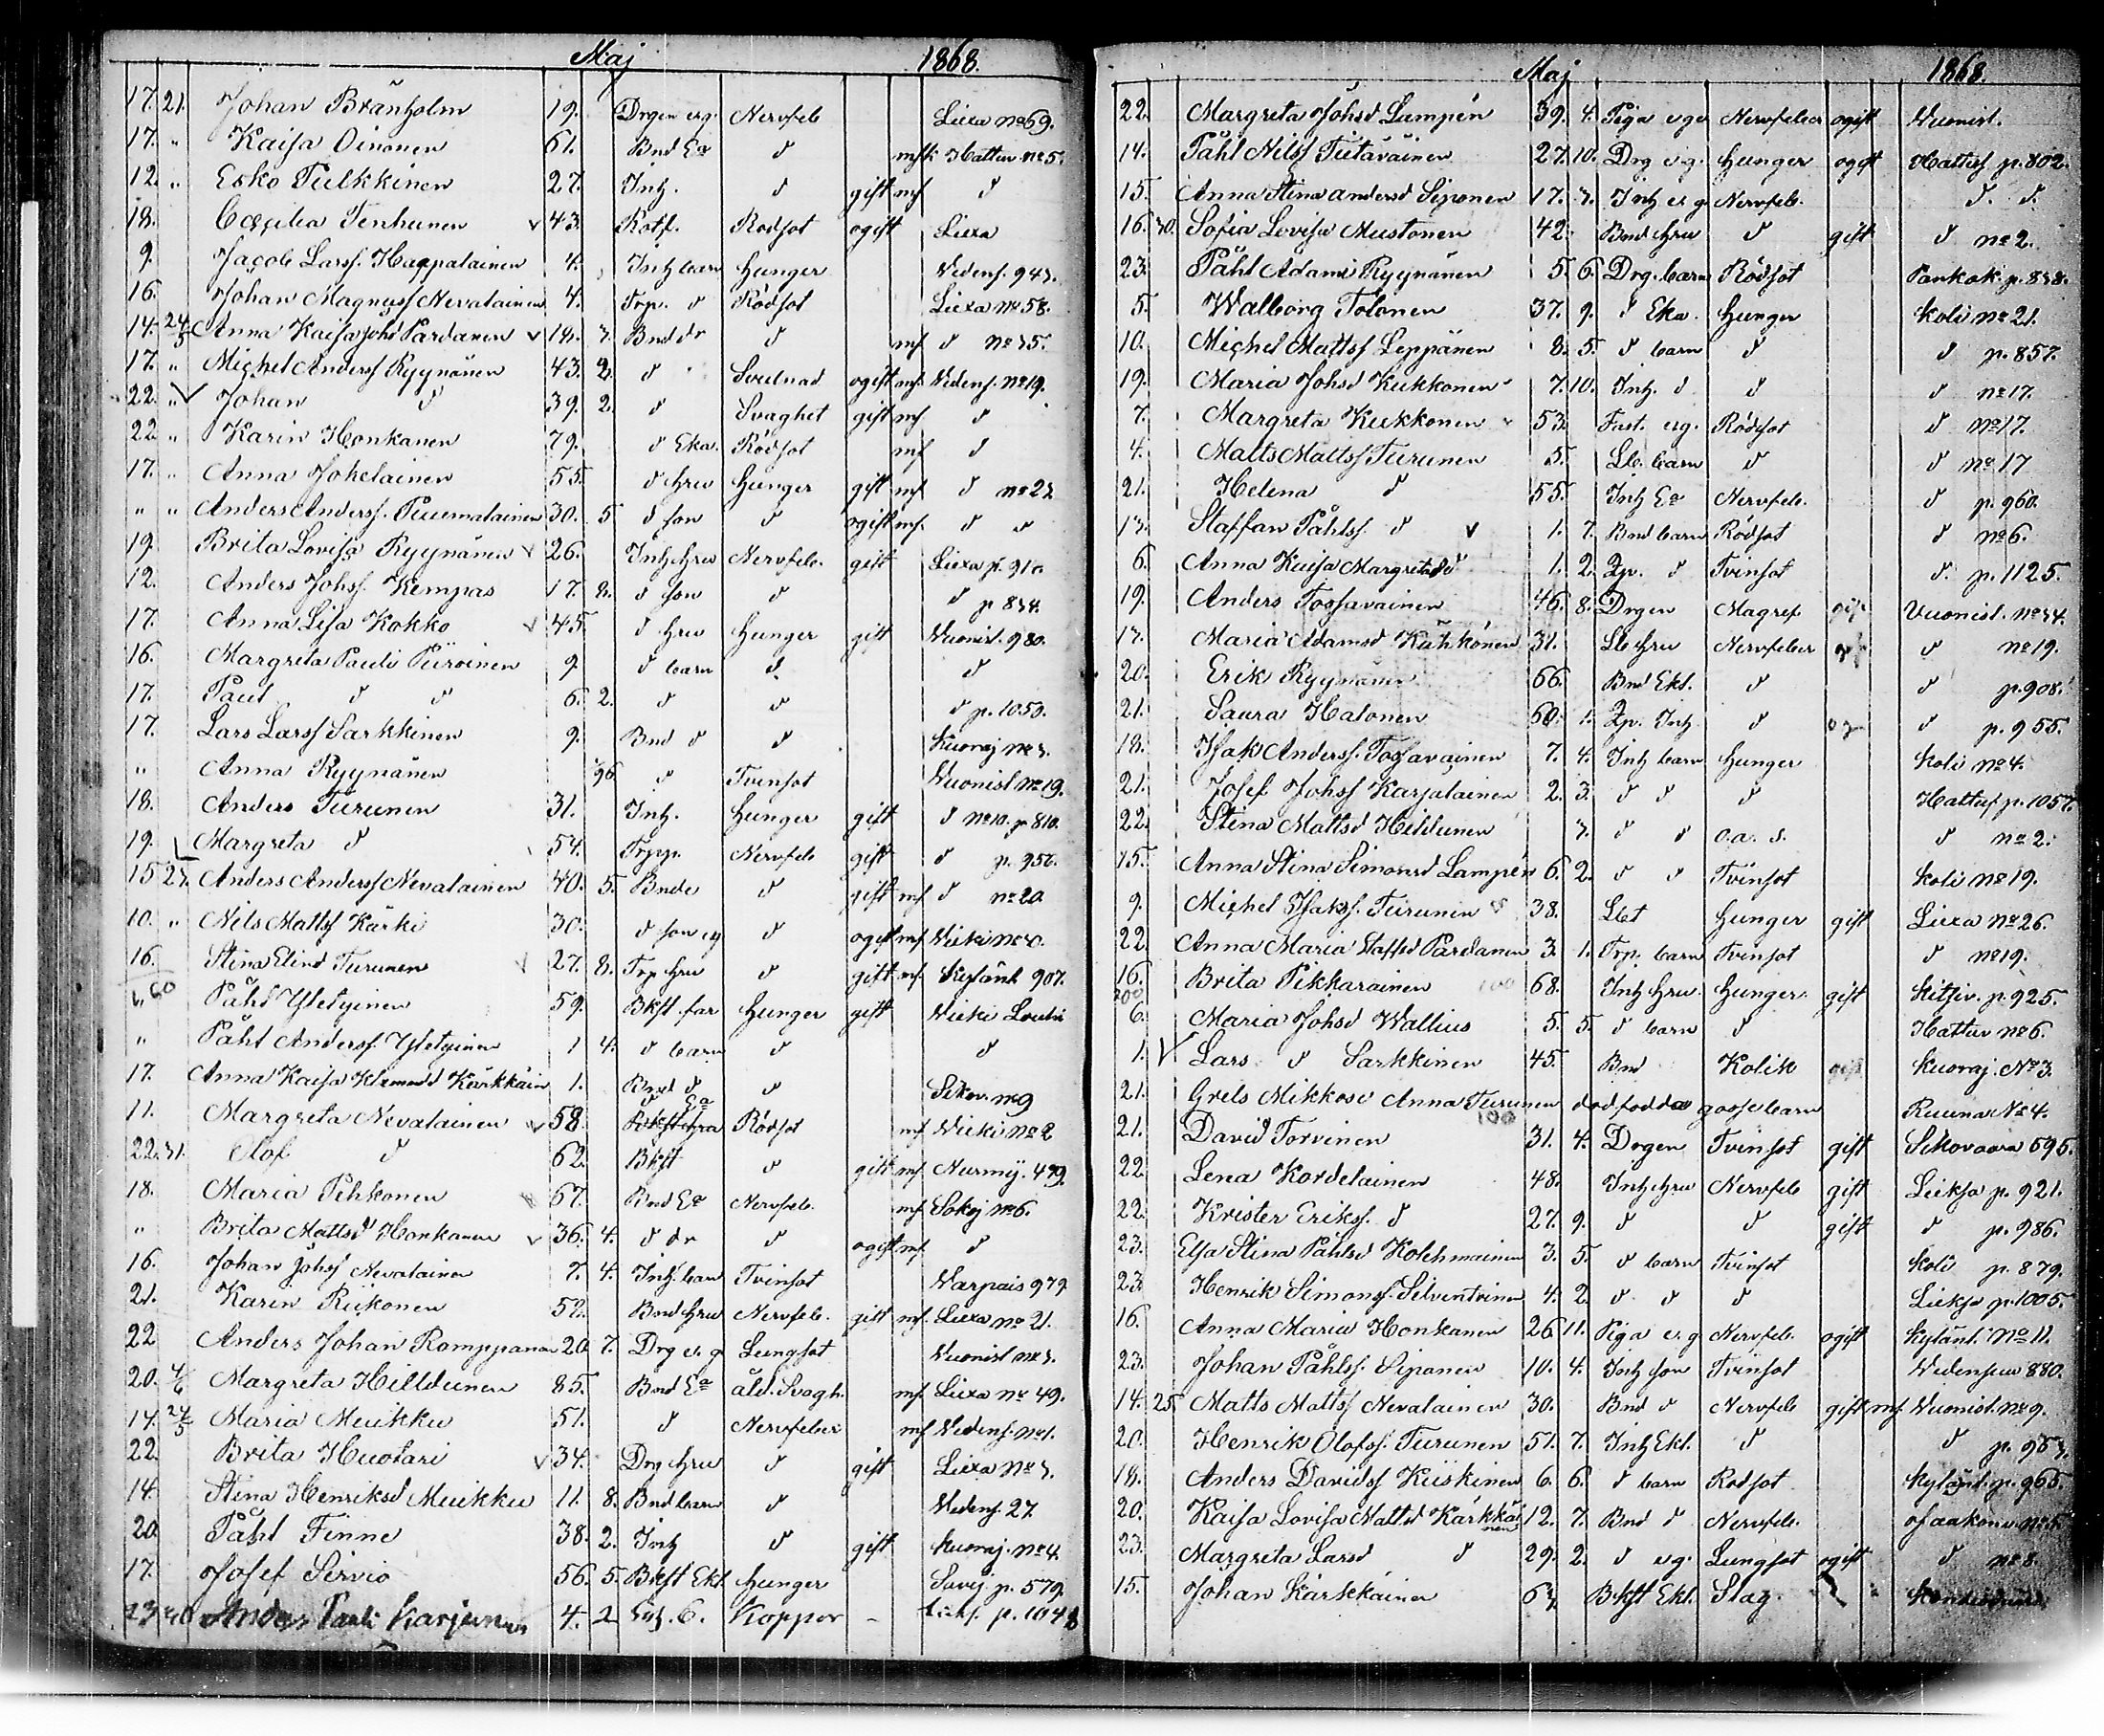 Maj 1868.
17. 21. Johan Bränholm 19. Drgen erg. Nervfeb Liexa no 69.
17. " Kaisa Oinonen 61. Bnd Ea d mf Hattuv no 5.
12. " Esko Pulkkinen 27. Inh. d gift mf d
18. Cecilia Tenhunen v 43. Rotf. Rodsot ogift Liexa
9. Jacob Larsf. Happalainen 4. Inh barn Hunger Vedens. 943.
16. Johan Magnusf Nevalainen 4. Trp. d Rödsot Liexa no 58.
14. 24/5 Anna Kaisa Johd Pardanen v 14. 3. Bnd dr d mf d no 35.
17. " Michel Andersf Ryynänen 43. 2. d Svulnad ogift mf. Vedens. no 19.
22. " v Johan d 39. 2. d Svaghet gift mf d
22. " Karin Honkanen 79. d Eka. Rödsot mf d
17. " Anna Jokelainen 55. d hru Hunger gift mf d no 23
" " Anders Andersf. Puumalainen 30. 5 d son d ogift mf. d d
19. Brita Lovisa Ryynänen v 26. Inh hru Nervfeb. gift Liexa p. 910.
12. Anders Johsf. Kempas 17. 8. d son d d p 834.
17. Anna Lisa Kokko v 45. d hru Hunger gift Vuonisl. 980.
16. Margreta Pauli Piiroinen 9. d barn d. d
17. Paul d d 6. 2. d d d p. 1053.
17. Lars Larsf Sarkkinen 9. Bnd d d Kuoraj no 3.
" Anna Ryynänen 96 d Tvinsot Vuonisl no 19.
18. Anders Turunen 31. Inh. Hunger gift d no 10. p 810.
19. Margreta d 54. Trpp. Nervfeb gift d p. 956.
15 23. Anders Andersf Nevalainen 40. 5. Bnde d gift mf d no 20
10. " Nils Mattsf Kärki 30. d son erg d ogift mf Vieki no 10.
16. Stina Elind Turunen v 27. 8. Trp hru d gift mf Kylänl 907.
" 60 Påhl Yletyinen 59. Bkst far Hunger gift Vieki
" Påhl Andersf. Yletyinen 1 4. d barn d d
17. Anna Kaisa Klemend Kärkkäin 1. Bnd d d Sikov. no 9
11. Margreta Nevalainen v 58. Ea Rödsot mf Vieki no 2
22. 31. Olof d 62. Bkst d gift mf Nurmij. 479
18. Maria Pehkonen 67. Bnd Ea Nervfeb. mf Sokoj no 6.
" Brita Mattsd Honkanen v 36. 4. d dr d ogift mf d
16. Johan Johsf Nevalainen 7. 4. Inh. barn Tvinsot Varpais 979
21. Karin Riikonen 52. Bnd hru Nervfeb. gift mf. Liexa no 21.
22 Anders Johan Romppanen 20. 7. Drg er. g Lungsot Vuonisl no 3.
20. 4/6 Margreta Hilldunen 85. Bnd Ea åld. Svagh. mf Liexa no 49.
14. 24/5 Maria Muikku 51. d Nervfeber mf Vedens. no 1.
22. Brita Huotari v 34. Drg hru d gift Liexa no 3.
14. Stina Henriksd Muikku 11. 8. Bnd barn d Vedens. 27
20. Påhl Finne 38. 2. Inh d gift Kuoraj. no 4.
17. Josef Sirvio 56. 5. Bkst Ekl. Hunger Savij. p. 579.
23 30 Anders Pauli Karjunen 4. 2 Inh. b. Koppor - Lieks. p. 1048
Maj 1868.
22. Margreta Johsd Lampén 39. 4. Piga erge Nervfeber ogift Vuonisl.
14. Påhl Nilsf Tiitäväinen 27. 10. Drg e.g. Hunger ogift Hattuf p. 802.
15. Anna Stina Andersd Siponen 17. 3. Inh er g Nervfeb. d. d.
16. 30. Sofia Lovisa Mustonen 42. Bnd hru d gift d no 2.
23. Påhl Adami Ryynänen 5. 6. Drg. barn Rödsot Pankak. p. 838.
5. Walborg Tolonen 37. 9. d Eka. Hunger Koli no 21.
10. Michel Mattsf Leppänen 8. 5. d barn d d p. 857.
19. Maria Johsd Kukkonen 7. 10. Inh. d d d no 17.
7. Margreta Kukkonen 53. Fast. erg. Rödsot d no 17.
4. Matts Mattsf Turunen 5. Lb. barn d d no 17
21. Helena d 55. Inh Ea Nervfeb. d p. 960.
13. Staffan Påhlsf. d v 1. 7. Bnd barn Rödsot d no 6.
6. Anna Kaisa Margretasd d 1. 2. Zp. d Tvinsot d. p. 1125.
19. Anders Tossavainen 46. 8. Drgen Magref gift Vuonisl. no 34.
13. Maria Adamsd Kähkönen 31. Lb hru Nervfeber gift d no 19.
20. Erik Ryynänen 66. Bnd Ekl. d d p. 908.
21. Laura Halonen 60. 1. Zp. Inh. d d p. 955.
18. Isak Andersf. Tossavainen 7. 4. Inh barn Hunger Koli no 4.
21. Josef Johsf Karjalainen 2. 3. d d d Hattuf p. 1057.
22. Stina Mattsd Hildunen 3. d d o.a. s. d no 2.
15. Anna Stina Simonsd Lampén 6. 2. d d Tvinsot Koli no 19.
9. Michel Isaksf. Turunen 38. Lbt Hunger gift Liexa no 26.
22. Anna Maria Staffsd Pardanen 3. 1. Trp. barn Tvinsot d no 19.
16. Brita Pikkarainen 100 68. Inh hru. Hunger. gift Kitsiv. p. 925.
200
6. Maria Johsd Wallius 5. 5. d barn d Hattuv no 6.
1. V Lars d Sarkkinen 45. Bnd Kolik gift Kuoraj. No 3.
21. Grels Mikkosi Anna Turunen dödfödda gossebarn Ruuna No 4.
100
21. David Torvinen 31. 4. Drgen Tvinsot gift Sikovaara 595.
22. Lena Kordelainen 48. Inh hru Nervfeb gift Lieksa p. 921.
22. Krister Eriksf. d 27. 9. d d gift d p. 986.
23. Elsa Stina Påhlsd Kolehmainen 3. 5. d barn Tvinsot Koli p. 879.
23. Henrik Simonsf. Silventoinen 4. 2. d d d Lieksa p. 1005.
16. Anna Maria Honkanen 26 11. Piga er. g Nervfeb. ogift Kylänl. No 11.
23. Johan Påhlsf. Siponen 10. 4. Inh son Tvinsot Vedensuu 880.
14. 25. Matts Mattsf Nevalainen 30. Bnd d Nervfeb gift mf Vuonisl. no 9.
20. Henrik Olofsf. Turunen 51. 7. Inh Ekl. d d p. 953.
18. Anders Davidsf Kiiskinen 6. 6. d barn Rodsot Kylänl. p. 965.
20. Kaisa Lovisa Mattsd Kärkkäinen 12. 7. Bnd d Nervfeb. Jaakonv. no 5.
23. Margreta Larsd d 29. 2. d erg. Lungsot ogift d no 8.
15. Johan Kärkkäinen 63. Bkst Ekl. Slag